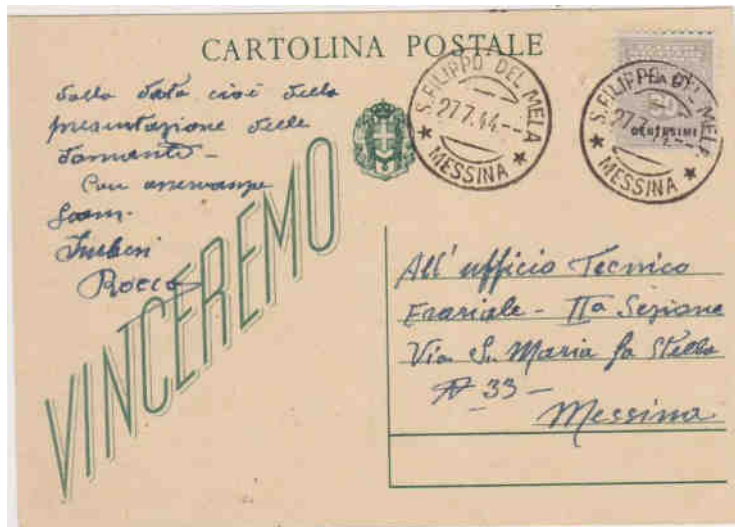 CARTOLINA POSTALE
dalla data cioè della
presentazione delle
domande -
Con osservanza
Geom.
Rocco
VINCEREMO
S. FILIPPO DEL MELA
27.7.44
★ MESSINA ★
S. FILIPPO DEL MELA
27.7.44
★ MESSINA ★
CENTESIMI
All'ufficio Tecnico
Erariale - IIª Sezione
Via S. Maria la Stella
N 33 -
Messina